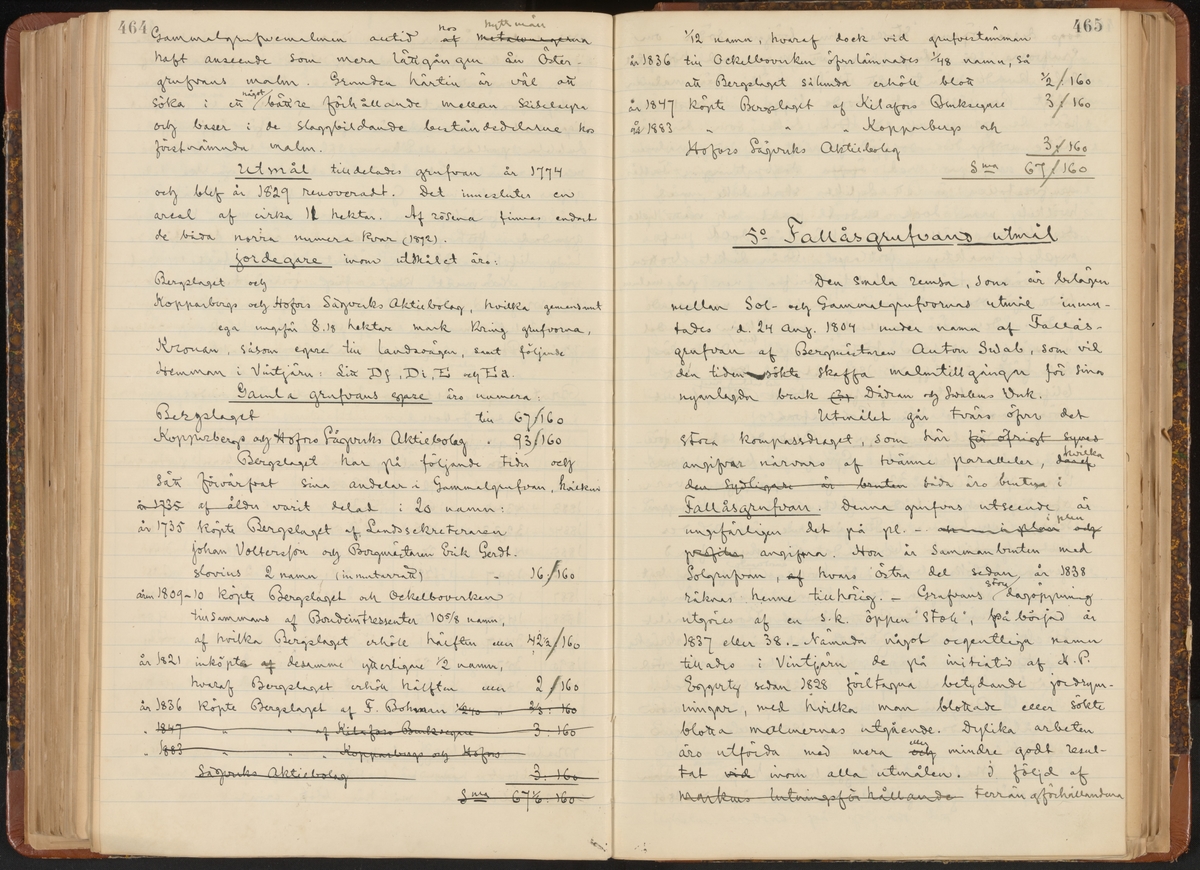 464
Gammalgrufvemalmen alltid hos hyttemän af metallnagerna
haft anseende som mera lättgången än Öster-
grufvans malm. Grunden härtill är väl att
söka i ett något bättre förhållande mellan kiselsyra
och baser i de slaggbildande beståndsdelarne hos
förstnämnda malm.
Utmål tilldelades grufvan år 1774
och blef år 1829 renoveradt. Det inneslutes en
areal af cirka 12 hektar. Af rösena finnas endast
de båda norra numera kvar (1892).
Jordegare inom utmålet äro:
Bergslaget och
Kopparbergs och Hofors Sågverks Aktiebolag, hvilka gemensamt
ega ungefär 8.18 hektar mark kring grufvorna,
Kronan, såsom egare till landsvägen, samt följande
Hemman i Vintjärn: Litt Df, Di, E och Ea.
Gamla grufvans egare äro numera:
Bergslaget till 67/160
Kopparbergs och Hofors Sågverks Aktiebolag " 93/160
Bergslaget har på följande tider och
sätt förvärfvat sina andelar i Gammalgrufvan, hvilken
år 1735 af ålder varit delad i 20 namn:
år 1735 köpte Bergslaget af Landssekreteraren
Johan Voltersson och Bergmästaren Erik Gerdt.
slovius 2 namn (inmutarrätt) - 16/160
åren 1809-10 köpte Bergslaget och Ockelboverken
tillsammans af Bondeintressenter 10 5/8 namn,
af hvilka Bergslaget erhöll hälften eller 42 1/2/160
år 1821 inköpte af desamme ytterligare 1/2 namn,
hvaraf Bergslaget erhöll hälften eller 2/160
år 1836 köpte Bergslaget af F. Bohman 2/3:160
" 1847 " " af Kilafors Bruksegare 3:160
" 1883 " " Kopparbergs och Hofors
Sågverks Aktiebolag 3:160
Sma 67 1/6:160
465
1/12 namn, hvaraf dock vid grufvestämman
år 1836 till Ockelboverken öfverlämnades 1/48 namn, så
att Bergslaget sålunda erhöll blott 1/2/160
år 1847 köpte Bergslaget af Kilafors Bruksegare 3/160
år 1883 " " " Kopparbergs och
Hofors Sågverks Aktiebolag 3/160
Sma 67/160
5o Fallåsgrufvans utmål
Den smala remsa, som är belägen
mellan Sol- och Gammalgrufvornas utmål inmu-
tades d. 24 Aug. 1804 under namn af Fallås-
grufvan af Bergmästaren Anton Swab, som vid
den tiden sökte skaffa malmtillgångar för sina
nyanlagda bruk Dådran och Svabens Verk.
Utmålet går tvärs öfver det
stora kompassdraget, som här för öfrigt synes
angifvar närvaro af tvänne paralleler, däraf hvilka
den sydligare är bruten båda äro brutna i
Fallåsgrufvan. Denna grufvas utseende är
ungefärligen det på pl. - i plan och
profiler angifna. Hon är sammanbruten med
Solgrufvan, af hvars östra del sedan år 1838
räknas henne tillhörig. - Grufvans stora dagöppning
utgöres af en s.k. öppen "Stoll", påbörjad år
1837 eller 38. - Nämnda något oegentliga namn
tillades i Vintjärn de på initiativ af N.P.
Eggertz sedan 1828 företagna betydande jordrym-
ningar, med hvilka man blottade eller sökte
blotta malmernas utgående. Dylika arbeten
äro utförda med mera och eller mindre godt resul-
tat vid inom alla utmålen. I följd af
markens lutningsförhållande terrängförhållandena